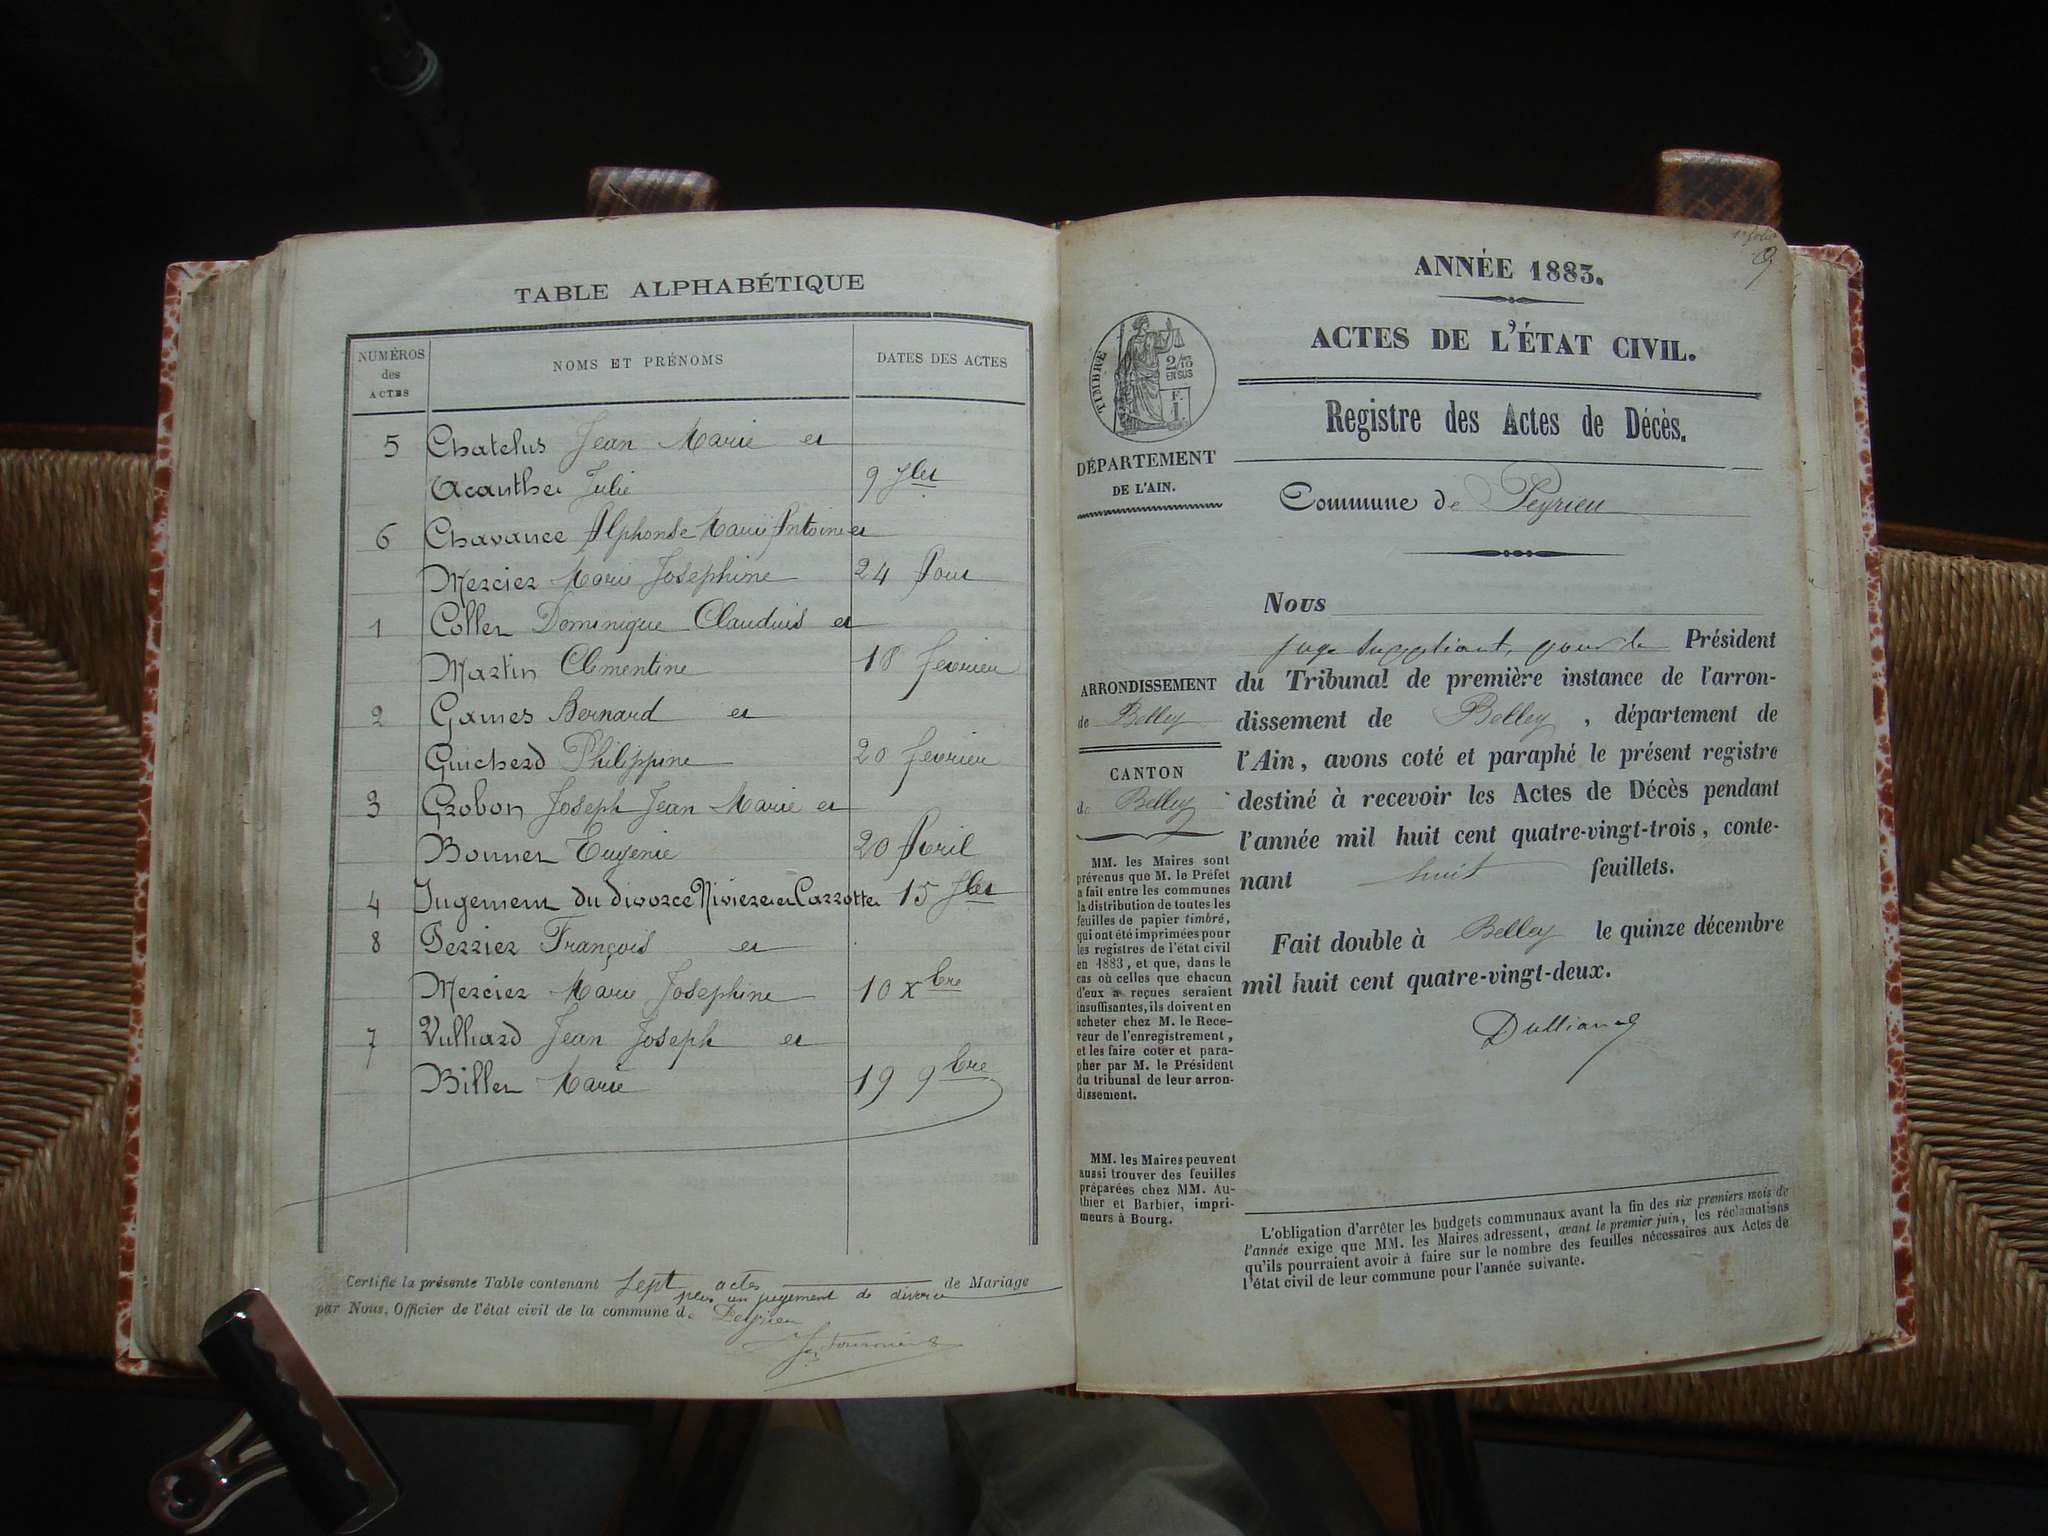 TABLE ALPHABÉTIQUE
NUMÉROS des ACTES
NOMS ET PRÉNOMS
DATES DES ACTES
5 Chatelus Jean Marie et
Acanthe Julie 9 Jlet
6 Chavance Alphonse Marie Antoine et
Mercier Marie Josephine 24 Aout
1 Collet Dominique Claudius et
Martin Clementine 18 fevrier
2 Games Bernard et
Guicherd Philippine 20 fevrier
3 Grobon Joseph Jean Marie et
Bonnet Eugenie 20 Avril
4 Jugement du divorce Riviere et Carrotte 15 Jlet
8 Perrier François et
Mercier Marie Josephine 10 Xbre
7 Vulliard Jean Joseph et
Billet Marie 19 9bre
Certifié la présente Table contenant Sept actes de Mariage
plus un jugement de divorce
par Nous, Officier de l'état civil de la commune de Peyrieu
9
ANNÉE 1883.
ACTES DE L'ÉTAT CIVIL.
Registre des Actes de Décès.
TIMBRE
2/10
EN SUS
F.
1.
DÉPARTEMENT
DE L'AIN.
Commune de Peyrieu
Nous
juge suppléant, pour le Président
du Tribunal de première instance de l'arron-
dissement de Belley, département de
l'Ain, avons coté et paraphé le présent registre
destiné à recevoir les Actes de Décès pendant
l'année mil huit cent quatre-vingt-trois, conte-
nant huit feuillets.
Fait double à Belley le quinze décembre
mil huit cent quatre-vingt-deux.
ARRONDISSEMENT
de Belley
CANTON
de Belley
MM. les Maires sont
prévenus que M. le Préfet
a fait entre les communes
la distribution de toutes les
feuilles de papier timbré,
qui ont été imprimées pour
les registres de l'état civil
en 1883, et que, dans le
cas où celles que chacun
d'eux a reçues seraient
insuffisantes, ils doivent en
acheter chez M. le Rece-
veur de l'enregistrement,
et les faire coter et para-
pher par M. le Président
du tribunal de leur arron-
dissement.
MM. les Maires peuvent
aussi trouver des feuilles
préparées chez MM. Au-
thier et Barbier, impri-
meurs à Bourg.
L'obligation d'arrêter les budgets communaux avant la fin des six premiers mois de
l'année exige que MM. les Maires adressent, avant le premier juin, les réclamations
qu'ils pourraient avoir à faire sur le nombre des feuilles nécessaires aux Actes de
l'état civil de leur commune pour l'année suivante.